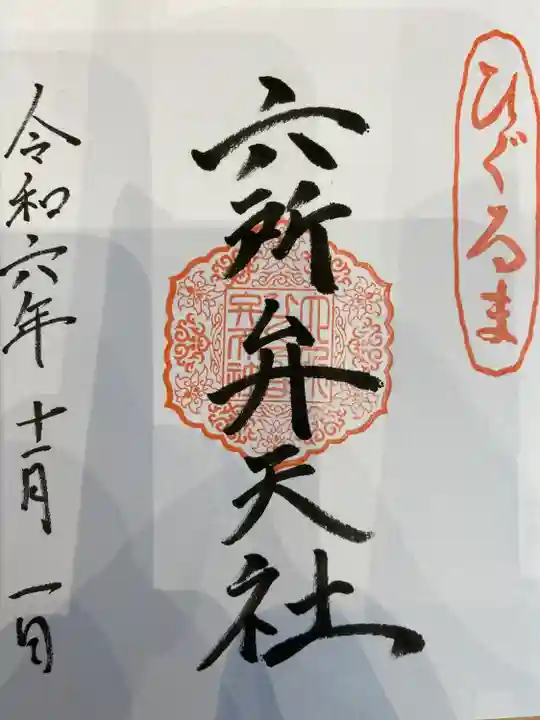 ひぐるま
六所弁天社
令和六年十一月一日